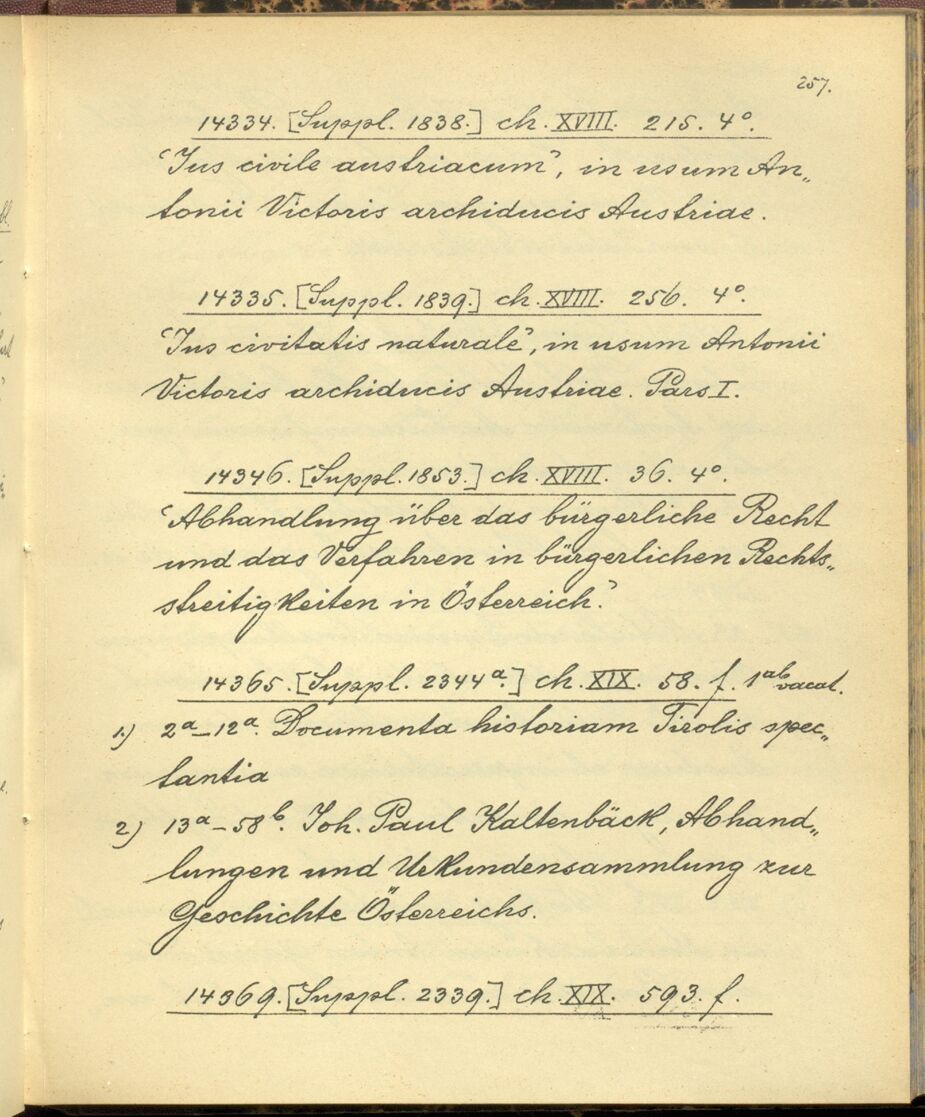 257.
14334. [Suppl. 1838.] ch. XVIII. 215. 4°.
‘Jus civile austriacum’, in usum An„
tonii Victoris archiducis Austriae.
14335. [Suppl. 1839.] ch. XVIII. 256. 4°.
‘Jus civitatis naturale’, in usum Antonii
Victoris archiducis Austriae. Pars I.
14346. [Suppl. 1853.] ch. XVIII. 36. 4°.
‘Abhandlung über das bürgerliche Recht
und das Verfahren in bürgerlichen Rechts„
streitigkeiten in Österreich.’
14365. [Suppl. 2344ª.] ch. XIX. 58. f. 1ªᵇ vacat.
1.) 2ª–12ª. Documenta historiam Tirolis spec„
tantia
2) 13ª–58ᵇ. Joh. Paul Kaltenbäck, Abhand„
lungen und Urkundensammlung zur
Geschichte Österreichs.
14369. [Suppl. 2339.] ch. XIX. 593. f.